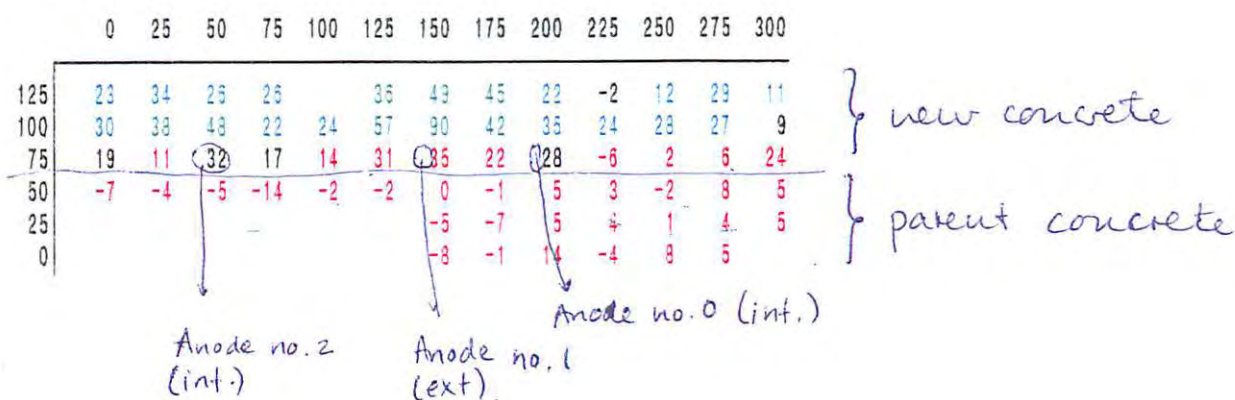 0 25 50 75 100 125 150 175 200 225 250 275 300
125 23 34 25 25 35 49 45 22 -2 12 29 11
100 30 38 48 22 24 57 90 42 35 24 28 27 9
75 19 11 32 17 14 31 35 22 28 -6 2 6 24
50 -7 -4 -5 -14 -2 -2 0 -1 5 3 -2 8 5
25 -5 -7 5 4 1 4 5
0 -8 -1 14 -4 8 5
} new concrete
} parent concrete
Anode no. 0 (int.)
Anode no. 2
(int.)
Anode no. 1
(ext)